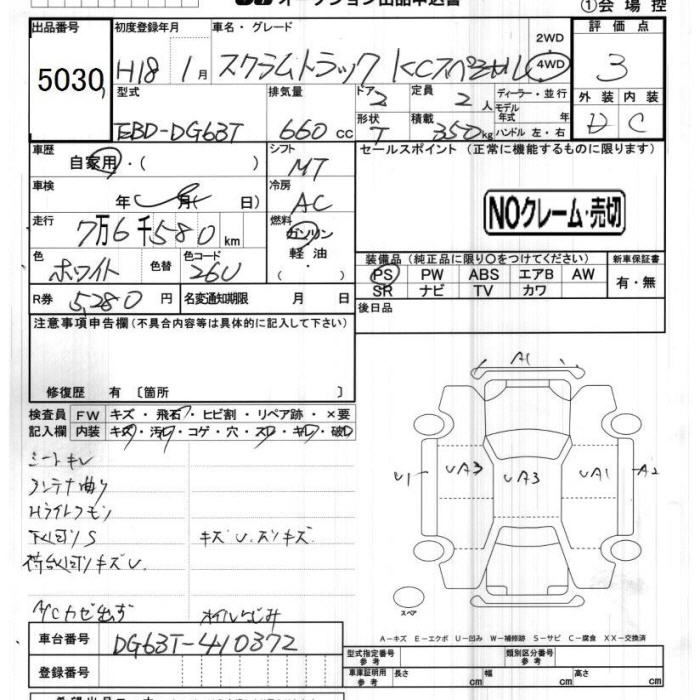 オークション出品申込書
①会場控
出品番号
5030
初度登録年月
H18 1月
車名・グレード
スクラムトラック KCスペシャル
2WD
4WD
評価点
3
外装 内装
D C
型式
EBD-DG63T
排気量
660 cc
ドア
2
定員
2人
ディーラー・並行
モデル年式 年
ハンドル 左・右
形状
T
積載
350kg
車歴
自家用・( )
シフト
MT
セールスポイント (正常に機能するものに限ります)
車検
年 月 日)
冷房
AC
NOクレーム・売切
走行
7万6千580 km
燃料
ガソリン・軽油
色
ホワイト
色替
色コード
26U
装備品 (純正品に限り○をつけてください)
新車保証書
PS PW ABS エアB AW
SR ナビ TV カワ
有・無
R券 5,280 円
名変通知期限 月 日
後日品
注意事項申告欄(不具合内容等は具体的に記入して下さい)
修復歴 有 〔箇所 〕
検査員 FW キズ・飛石・ヒビ割・リペア跡・×要
記入欄 内装 キズ・汚・コゲ・穴・スレ・キレ・破
シートキレ
アンテナ曲り
Hライトクモリ
下回りS キズU.スリキズ
荷台回リキズU.
A/Cカゼ出ず オイルにじみ
A1
U1 UA3 UA3 UA1 A2
スペア
A-キズ E-エクボ U-凹み W-補修跡 S-サビ C-腐食 XX-交換済
車台番号 DG63T-410372
登録番号
型式指定番号 参考
類別区分番号 参考
車庫証明用 参考
長さ cm 幅 cm 高さ cm